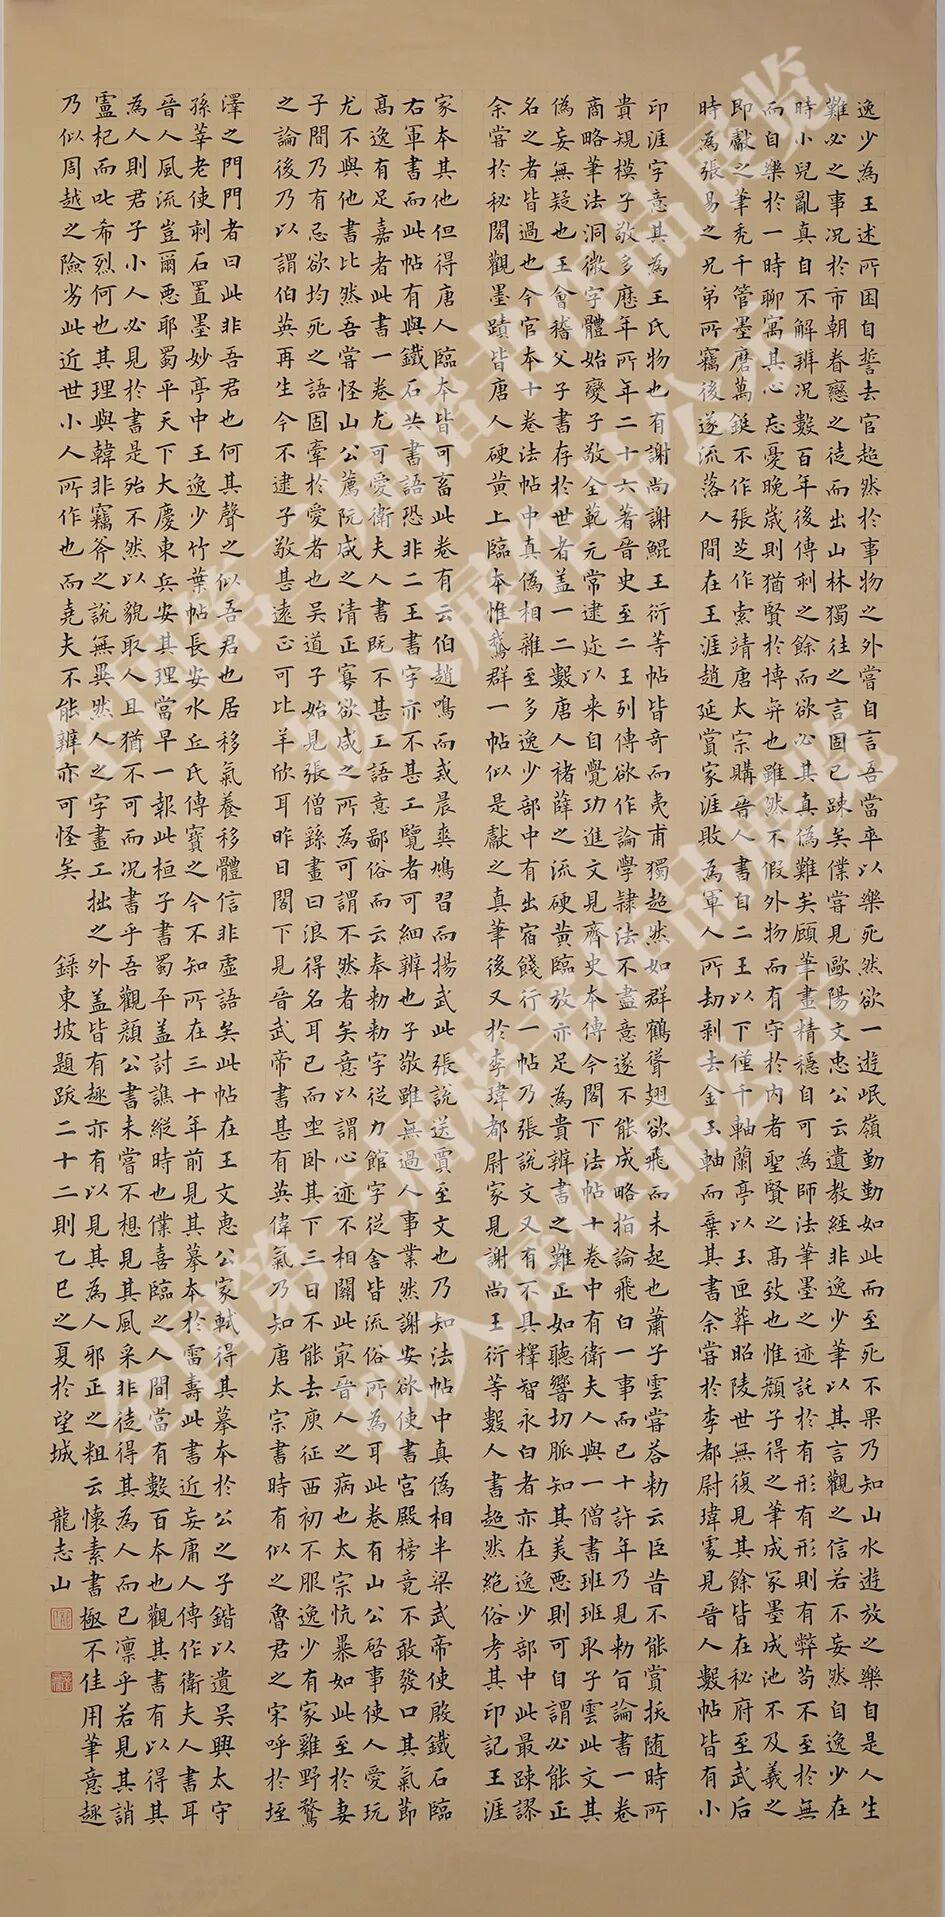 逸少為王述所困自誓去官超然於事物之外嘗自言吾當卒以樂死然欲一遊岷嶺勤勤如此而至死不果乃知山水遊放之樂自是人生
難必之事況於市朝眷戀之徒而出山林獨往之言固已疎矣僕嘗見歐陽文忠公云遺教經非逸少筆以其言觀之信若不妄然自逸少在
時小兒亂真自不解辨况數百年後傳刺之餘而欲必其真偽難矣顧筆畫精穩自可為師法筆墨之迹託於有形有形則有弊苟不至於無
而自樂於一時聊寓其心忘憂晚歲則猶賢於博弈也雖然不假外物而有守於內者聖賢之高致也惟顏子得之筆成冢墨成池不及羲之
即獻之筆禿千管墨磨萬鋌不作張芝作索靖唐太宗購晉人書自二王以下僅千軸蘭亭以玉匣葬昭陵世無復見其餘皆在秘府至武后
時為張易之兄弟所竊後遂流落人間在王涯趙延賞家涯敗為軍人所劫剥去金玉軸而棄其書余嘗於李都尉瑋處見晉人數帖皆有小
印涯字意其為王氏物也有謝尚謝鯤王衍等帖皆奇而夷甫獨超然如群鶴聳翅欲飛而未起也蕭子雲嘗答勅云臣昔不能賞拔随時所
貴規模子敬多歷年所年二十六著晉史至二王列傳欲作論學隸法不盡意遂不能成略指論飛白一事而已十許年乃見勅旨論書一卷
商略筆法洞微字體始變子敬全範元常逮迩以来自覺功進文見齊史本傳今閣下法帖十卷中有衛夫人與一僧書班班取子雲此文其
偽妄無疑也王會稽父子書存於世者盖一二數唐人褚薛之流硬黃臨放亦足為貴辨書之難正如聽響切脈知其美惡則可自謂必能正
名之者皆過也今官本十卷法帖中真偽相雜至多逸少部中有出宿餞行一帖乃張說文又有不具釋智永白者亦在逸少部中此最疎謬
余嘗於秘閣觀墨蹟皆唐人硬黃上臨本惟鵞群一帖似是獻之真筆後又於李瑋都尉家見謝尚王衍等數人書超然絕俗考其印記王涯
家本其他但得唐人臨本皆可畜此卷有云伯趙鳴而戒晨爽鳩習而揚武此張說送賈至文也乃知法帖中真偽相半梁武帝使殷鐵石臨
右軍書而此帖有與鐵石共書語恐非二王書字亦不甚工覽者可細辨也子敬雖無過人事業然謝安欲使書宮殿榜竟不敢發口其氣節
高逸有足嘉者此書一卷尤可愛衛夫人書既不甚工語意鄙俗而云奉勅勅字從力館字從舍皆流俗所為耳此卷有山公啓事使人愛玩
尤不與他書比然吾嘗怪山公薦阮咸之清正寡欲咸之所為可謂不然者矣意以謂心迹不相關此最晉人之病也太宗忼暴如此至於妻
子間乃有忌欲均死之語固牽於愛者也吳道子始見張僧繇畫曰浪得名耳已而坐卧其下三日不能去庾征西初不服逸少有家雞野鶩
之論後乃以謂伯英再生今不逮子敬甚遠正可比羊欣耳昨日閣下見晉武帝書甚有英偉氣乃知唐太宗書時有似之魯君之宋呼於垤
澤之門門者曰此非吾君也何其聲之似吾君也居移氣養移體信非虛語矣此帖在王文惠公家軾得其摹本於公之子鍇以遺吳興太守
孫莘老使刺石置墨妙亭中王逸少竹葉帖長安水丘氏傳寶之今不知所在三十年前見其摹本於雷壽此書近妄庸人傳作衛夫人書耳
晉人風流豈爾惡耶蜀平天下大慶東兵安其理當早一報此桓子書蜀平盖討譙縱時也僕喜臨之人間當有數百本也觀其書有以得其
為人則君子小人必見於書是殆不然以貌取人且猶不可而况書乎吾觀顏公書未嘗不想見其風采非徒得其為人而已凜乎若見其誚
盧杞而叱希烈何也其理與韓非竊斧之說無異然人之字畫工拙之外盖皆有趣亦有以見其為人邪正之粗云懷素書極不佳用筆意趣
乃似周越之險劣此近世小人所作也而堯夫不能辨亦可怪矣 錄東坡題跋二十二則乙巳之夏於望城 龍志山